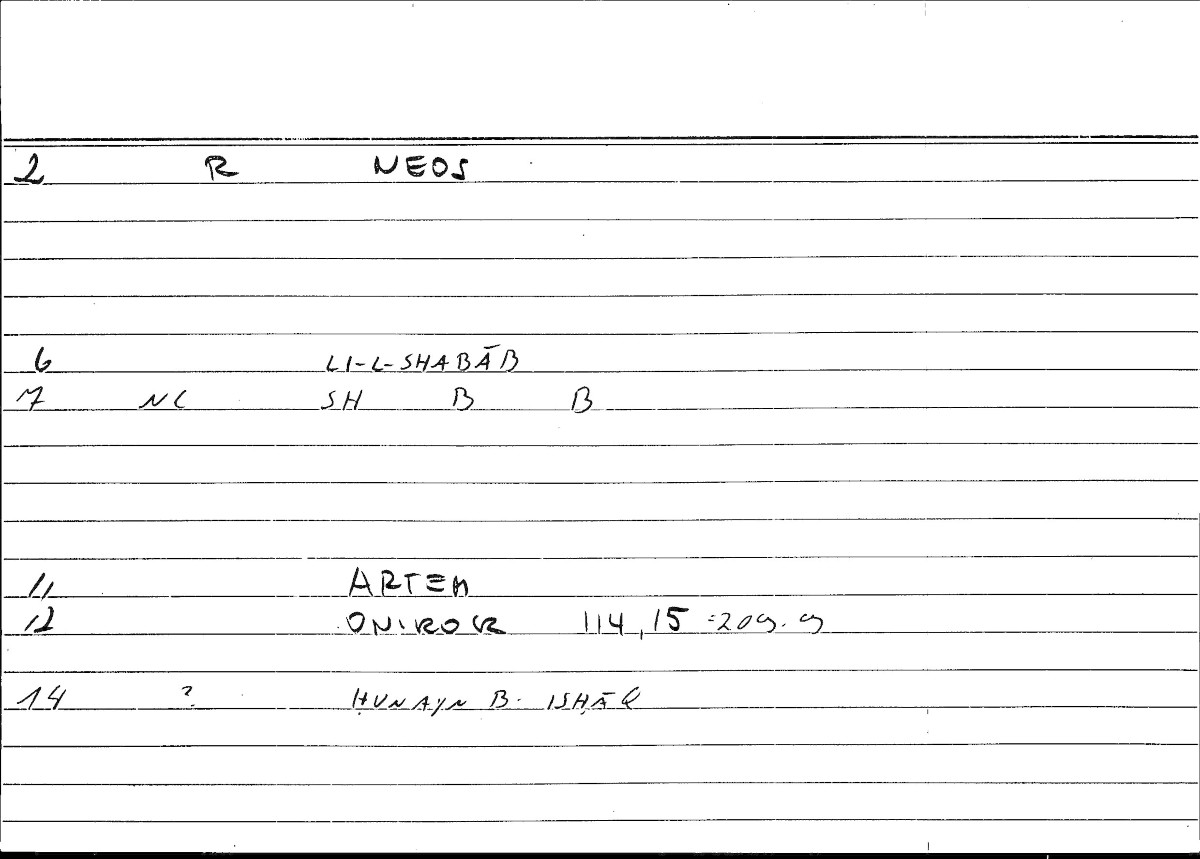 2 R NEOS
6 LI-L-SHABĀB
7 NC SH B B
11 ARTEM
12 ONIROCR 114,15 =209.9
14 ? ḤUNAYN B. ISḤĀQ